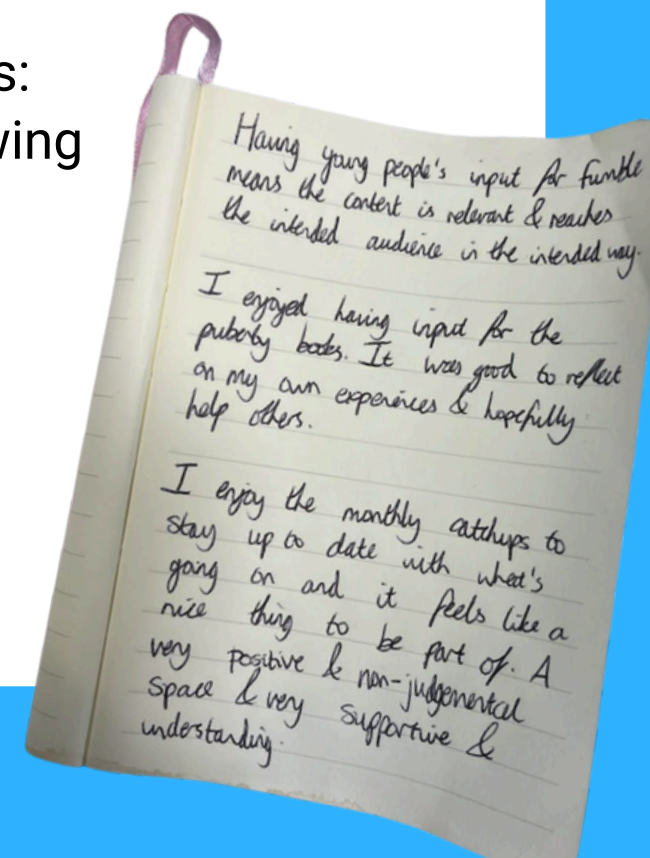 s:
wing
Having young people's input for fumble
means the content is relevant & reaches
the intended audience in the intended way.
I enjoyed having input for the
puberty books. It was good to reflect
on my own experiences & hopefully
help others.
I enjoy the monthly catchups to
stay up to date with what's
going on and it feels like a
nice thing to be part of. A
very positive & non-judgemental
space & very supportive &
understanding.